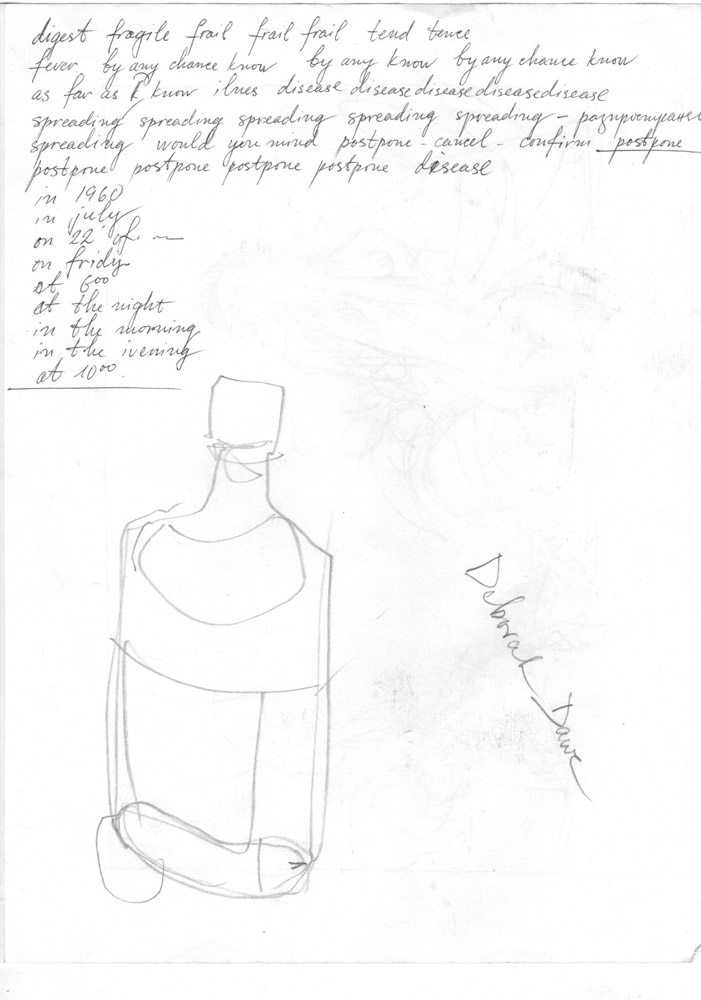 digest fragile frail frail frail tend tence
fever by any chance know by any know by any chance know
as far as I know ilnes disease disease disease disease disease
spreading spreading spreading spreading spreading - распространен
spreading would you mind postpone - cancel - confirm postpone
postpone postpone postpone postpone disease
in 1960
in july
on 22 of
on fridy
at 6⁰⁰
at the night
in the morning
in the ivening
at 10⁰⁰
Deborah Dawe